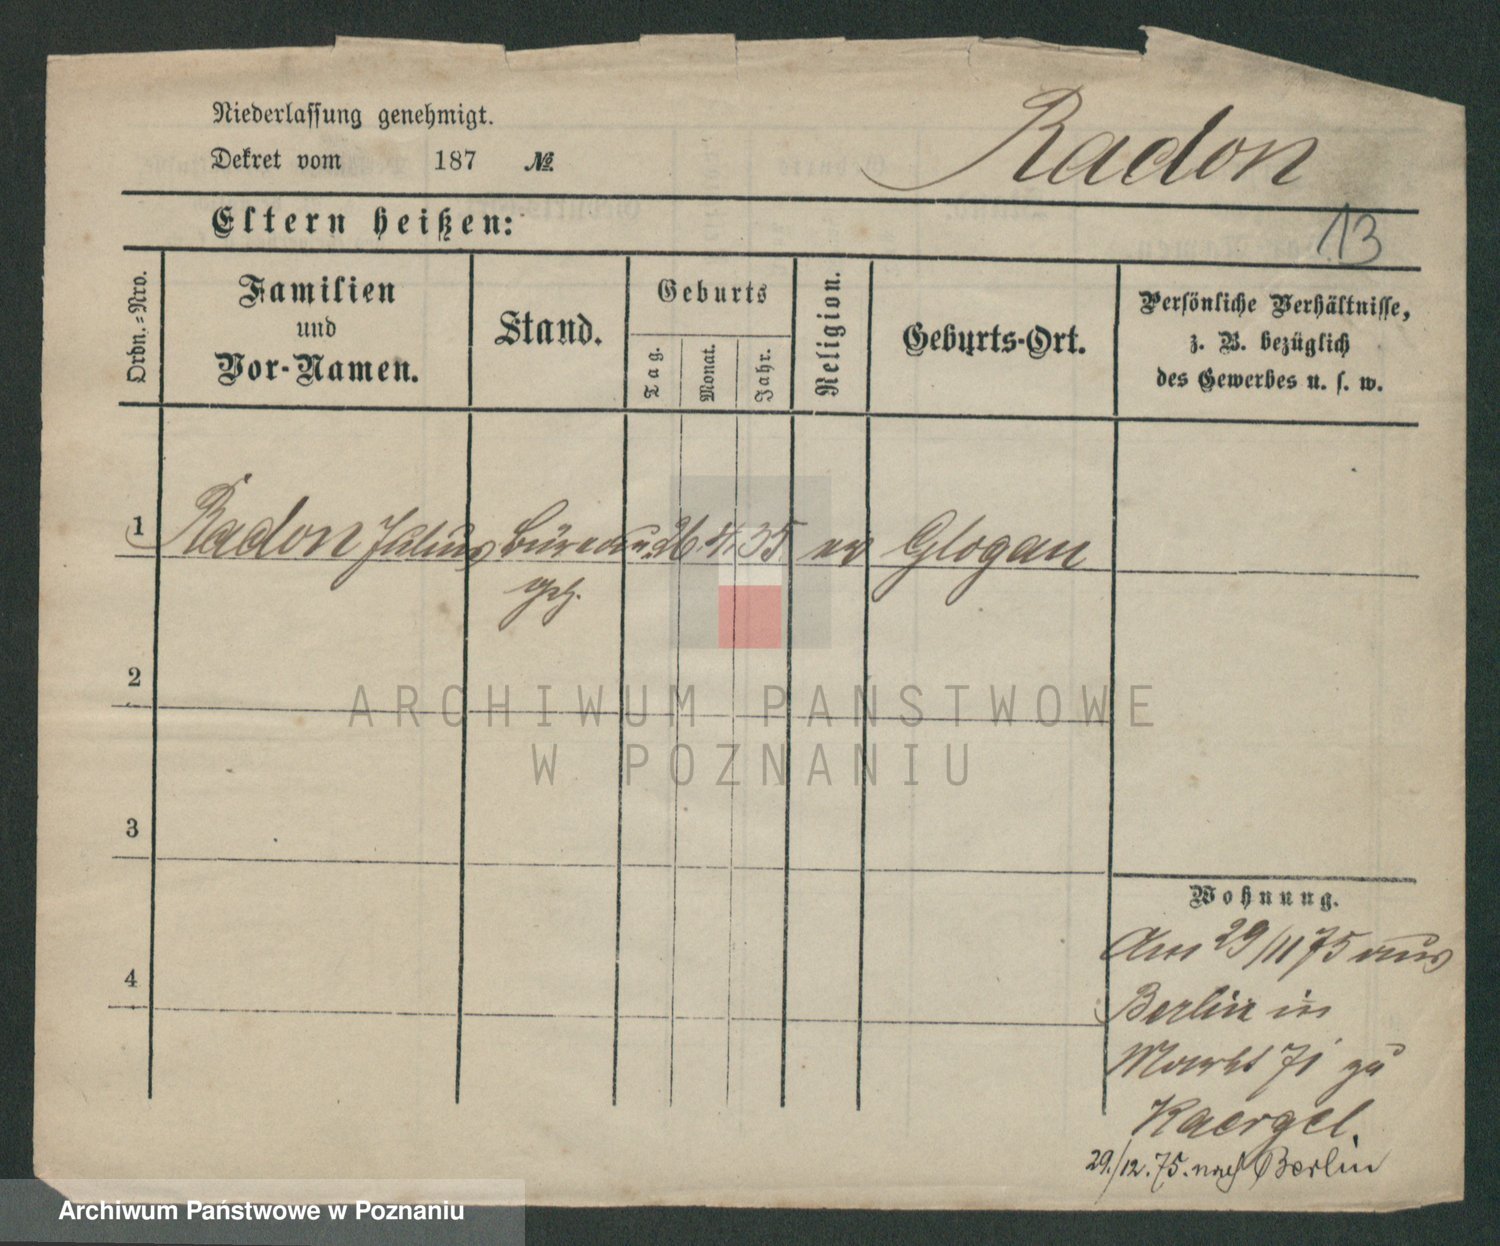 Niederlassung genehmigt.
Dekret vom 187 №.
Radon
Eltern heißen:
13
Ordn.-Nro.
Familien
und
Vor-Namen.
Stand.
Geburts
Tag.
Monat.
Jahr.
Religion.
Geburts-Ort.
Persönliche Verhältnisse,
z. B. bezüglich
des Gewerbes u. s. w.
1 Radon Julius Büreau 26. 4. 35. ev Glogau
geh.
2
ARCHIWUM PAŃSTWOWE
W POZNANIU
3
4
Wohnung.
Am 29/11 75 aus
Berlin in
Markt 71 zu
Kaergel.
29./12. 75. nach Berlin
Archiwum Państwowe w Poznaniu